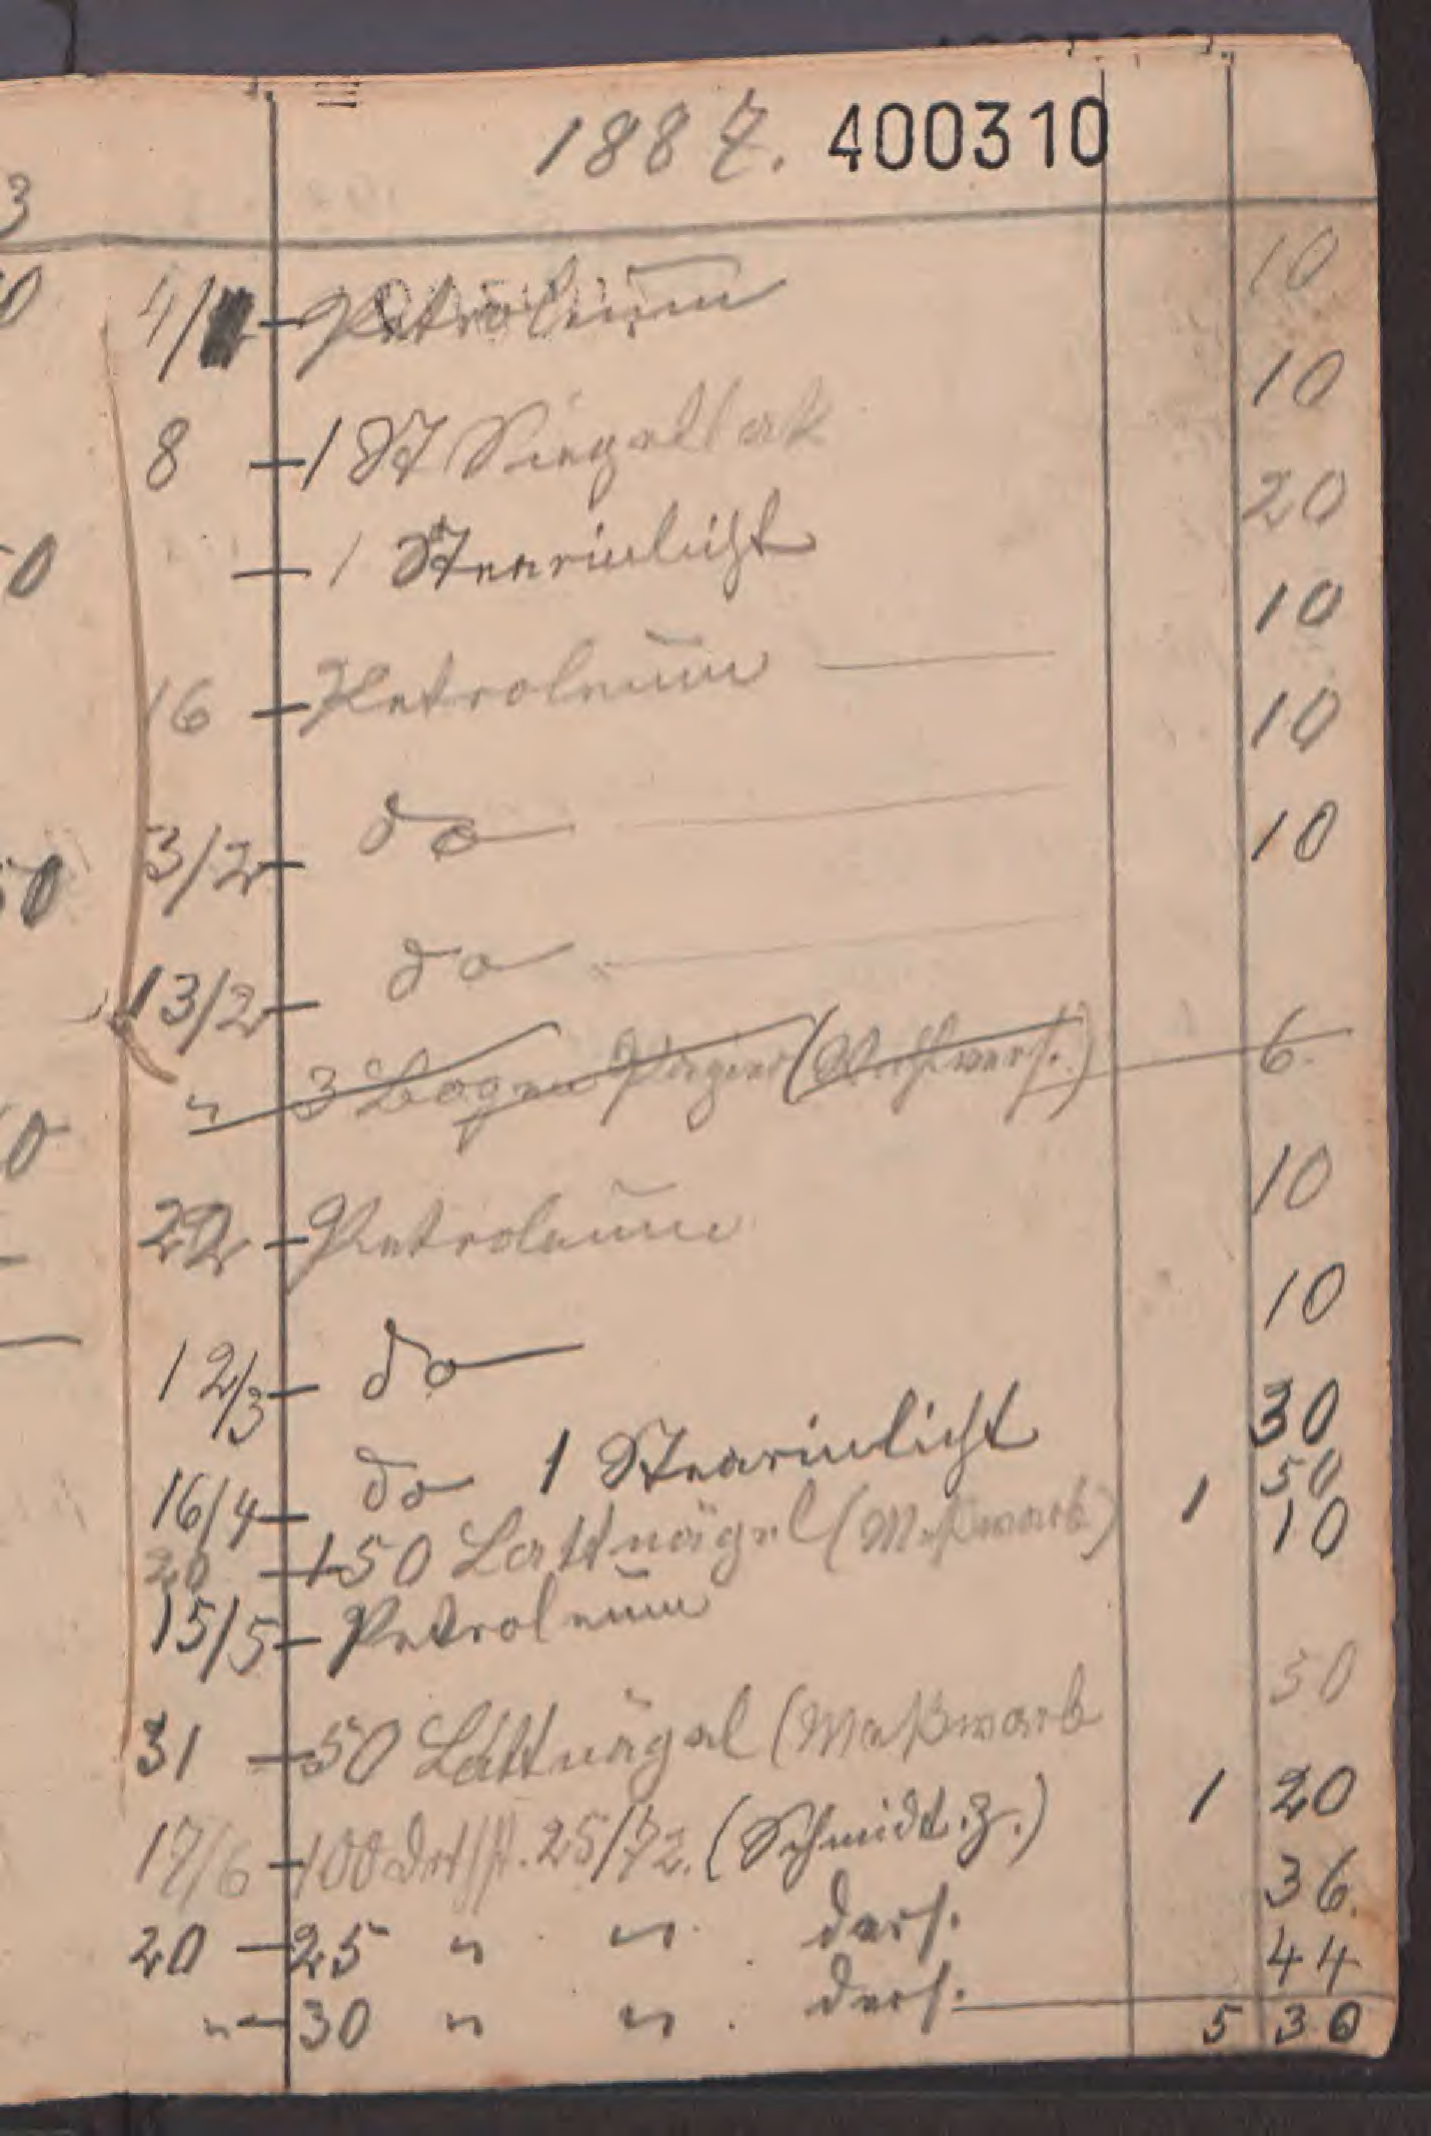 1887. 400310
4/ Petroleum 10
8 1 St Siegellak 10
1 Stearinlicht 20
16 Petroleum 10
3/2 do 10
13/2 do 10
" 3 Bogen Papier ( 6
22 Petroleum 10
12/3 do 10
16/4 do 1 Stearinlicht 30
20 150 Lattnägel (Meßwark) 1 50
15/5 Petroleum 10
31 50 Lattnägel (Meßwark 50
17/6 100 Drtst. 25/72. (Schmidt. Z.) 1 20
20 25 " " ders. 36.
" 30 " " ders. 44
5 30
3
0
50
50
0